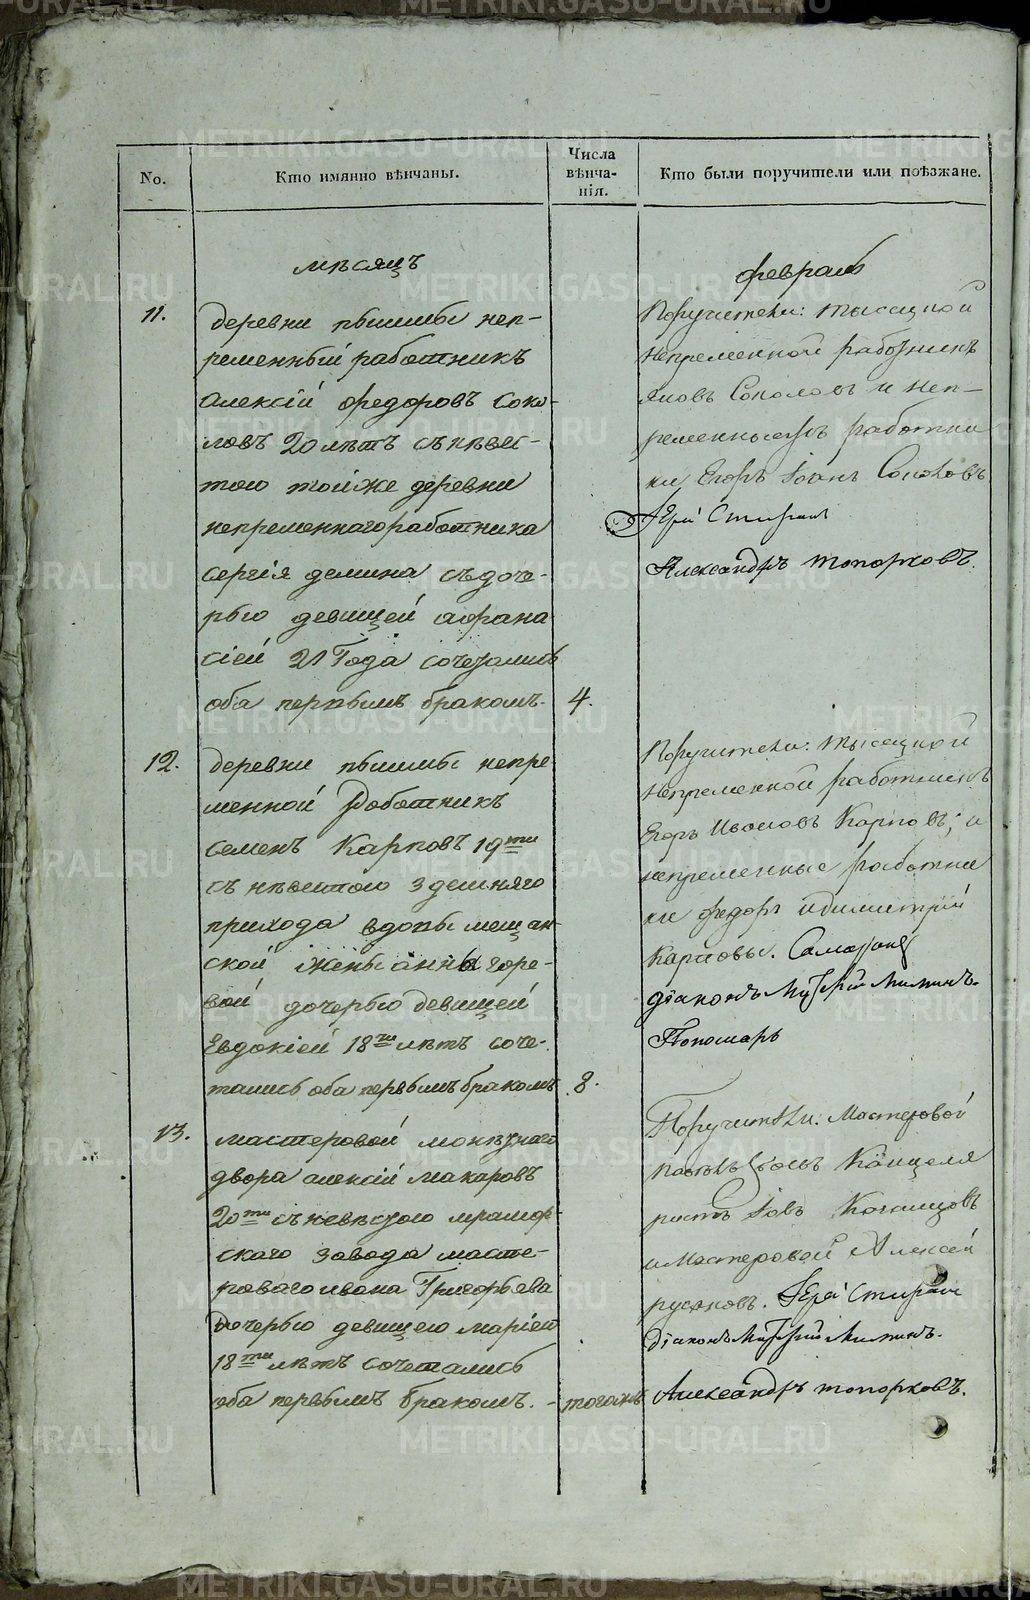 No.
Кто имянно вѣнчаны.
Числа
вѣнча-
нія.
Кто были поручители или поѣзжане.
мѣсяцъ
февраль
11.
деревни пышмы неп-
ременный работникъ
алексій федоровъ соко-
ловъ 20 лѣтъ съ невес-
тою тойже деревни
непременнаго работника
сергія демина съ доче-
рью девицей афана
сіей 21 Года сочетались
оба первымъ бракомъ.
4.
Поручители: тысяцкой
непременной работникъ
Яковъ Соколовъ и неп-
ременные работни
ки Егоръ Іоанъ Соколовъ
Іерей Стефанъ
Александръ топорковъ.
12.
деревни пышмы непре
менной работникъ
семенъ Карповъ 19ти
съ невестою здешняго
прихода вдовы мещан-
ской жены анны горе-
вой дочерью девицей
Евдокіей 18ти лѣтъ соче-
тались оба первымъ бракомъ
8.
Поручители: тысяцкой
непременной работникъ
Егоръ Ивановъ Карповъ; и
непременные работни
ки федоръ и димитрій
Карповы.
діаконъ
Пономарь
13.
мастеровой монетнаго
двора алексій макаровъ
20ти съ невѣстою мрамор-
скаго завода масте-
роваго ивана Григорьева
дочерью девицею маріей
18ти лѣтъ сочетались
оба первымъ бракомъ. -
тогожъ
Поручители: Мастеровой
Канцеля
ристъ Іовъ
и Мастеровой Алексей
русаковъ. Іерей Стефанъ
діаконъ
Александръ топорковъ.
METRIKI.GASO-URAL.RU